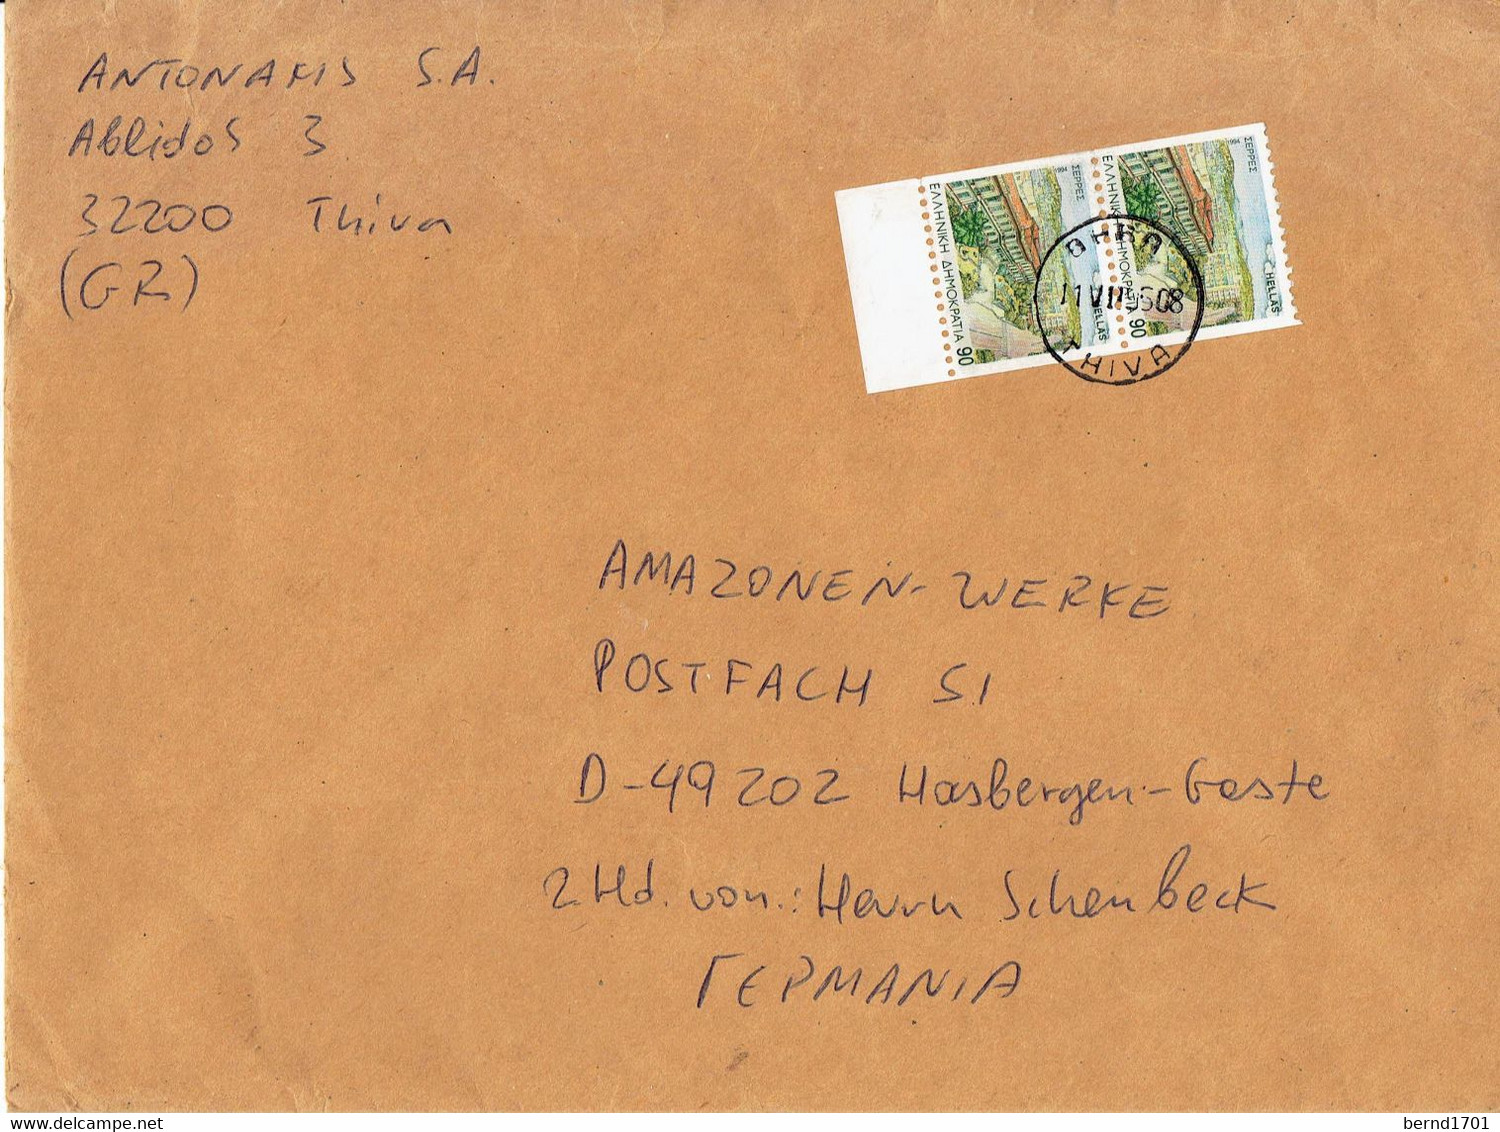 ANTONAKIS S.A.
Ablidos 3
32200 Thiva
(GR)
ΣΕΡΡΕΣ
1994
ΕΛΛΗΝΙΚΗ ΔΗΜΟΚΡΑΤΙΑ 90
HELLAS
ΣΕΡΡΕΣ
1994
ΕΛΛΗΝΙΚΗ ΔΗΜΟΚΡΑΤΙΑ 90
HELLAS
ΘΗΒΑ
THIVA
AMAZONEN-WERKE
POSTFACH 51
D-49202 Hasbergen-Gaste
z Hd. von.: Herrn Schenbeck
ΓΕΡΜΑΝΙΑ
delcampe.net
bernd1701